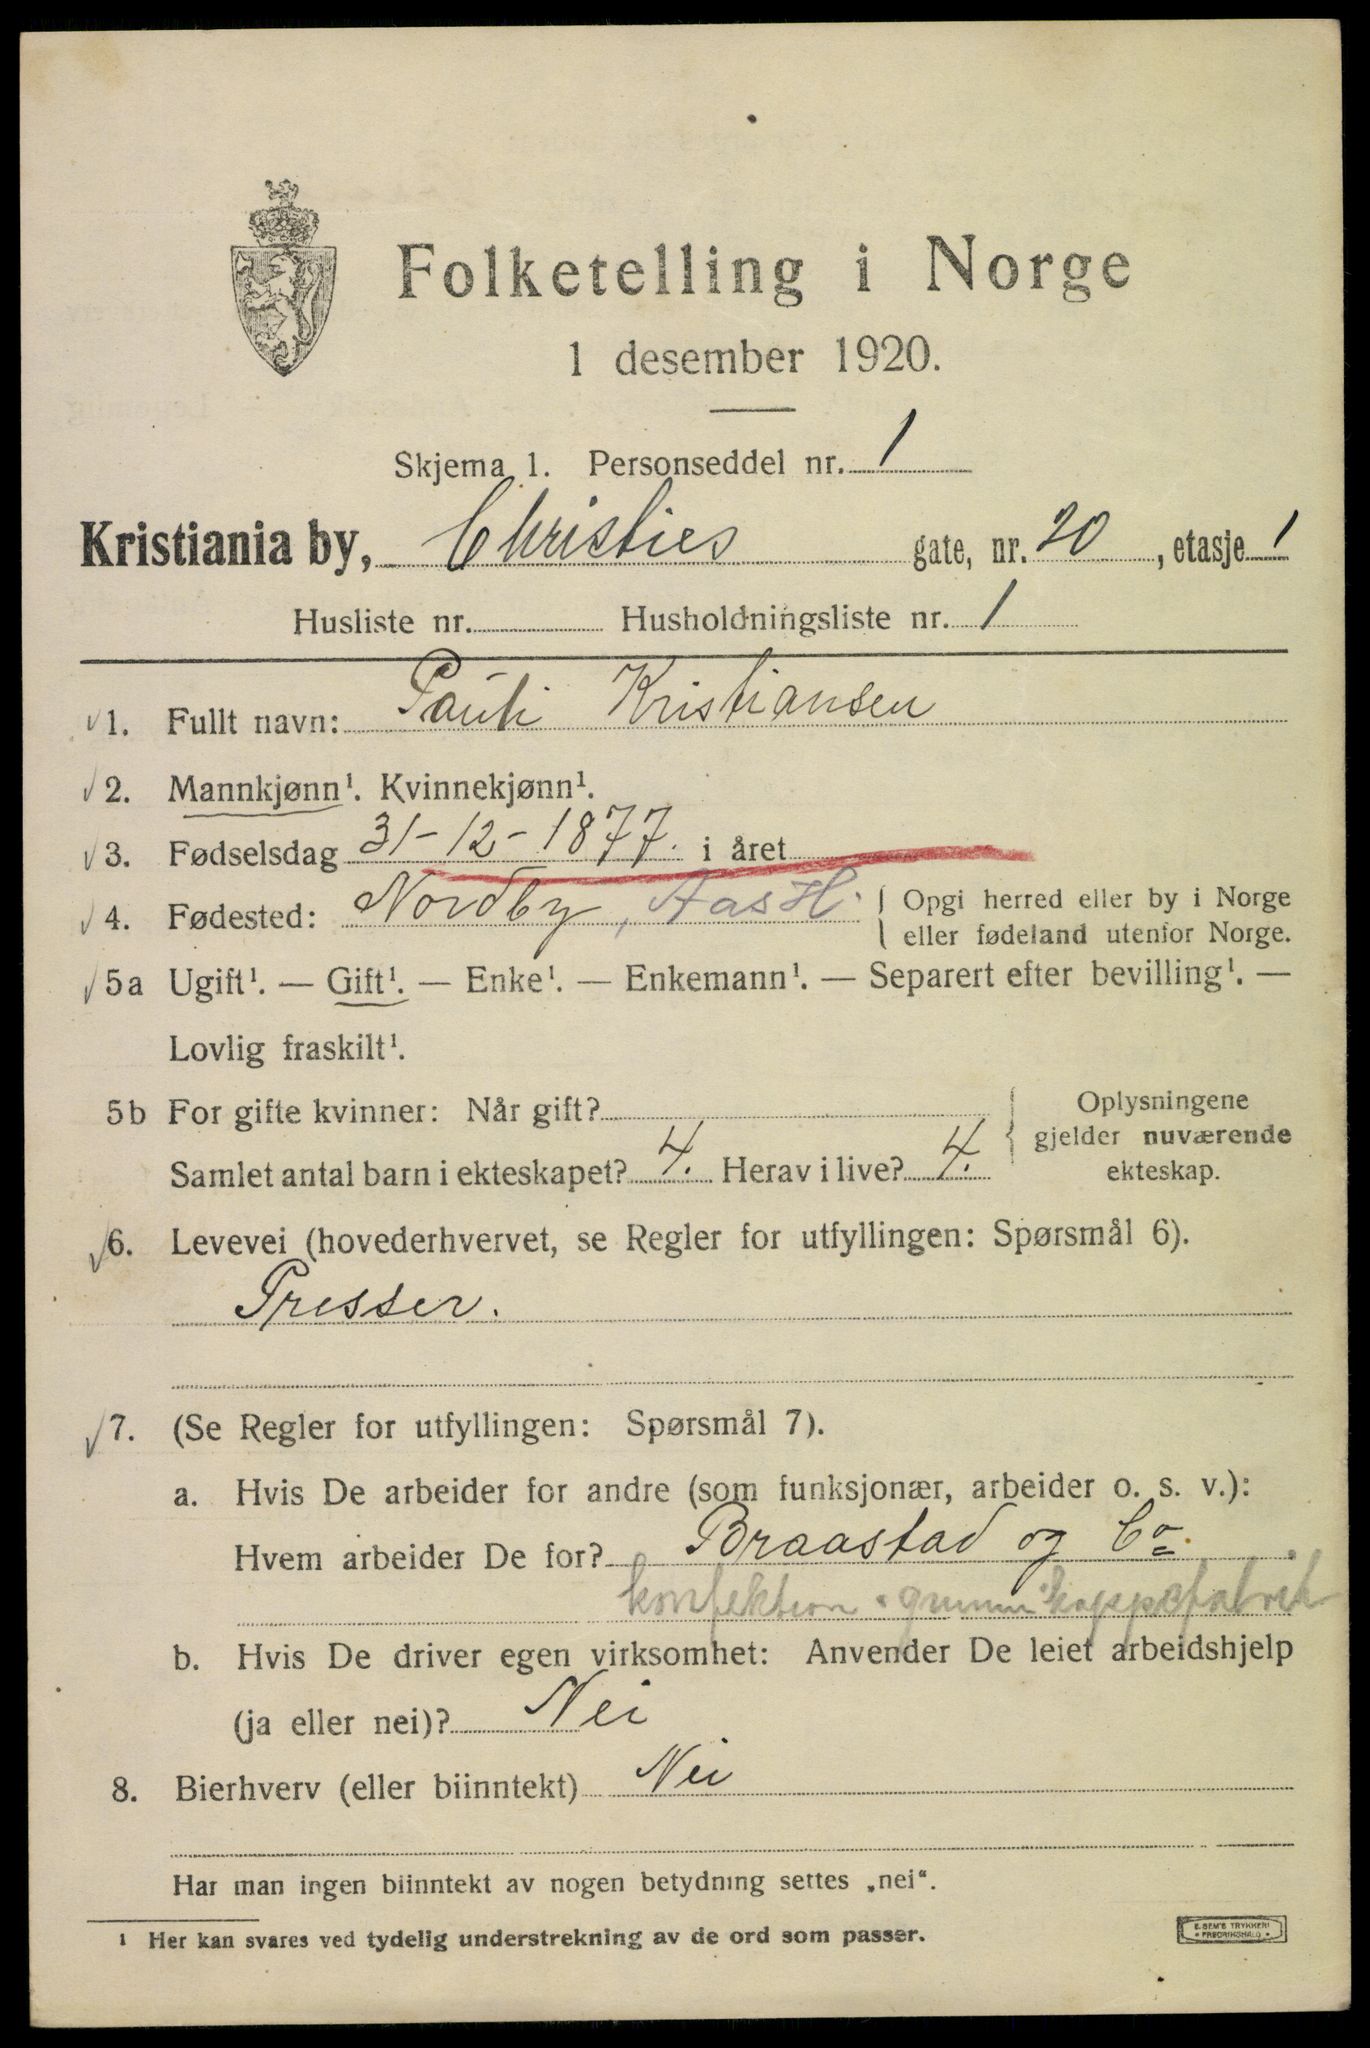 Folketelling i Norge
1 desember 1920.
Skjema 1. Personseddel nr. 1
Kristiania by, Christies gate, nr. 20, etasje 1
Husliste nr. Husholdningsliste nr. 1
1. Fullt navn: Kristiansen
2. Mannkjønn¹. Kvinnekjønn¹.
3. Fødselsdag 31-12-1877. i året
4. Fødested: Nordby, Aas H. { Opgi herred eller by i Norge
eller fødeland utenfor Norge.
5a Ugift¹. — Gift¹. — Enke¹. — Enkemann¹. — Separert efter bevilling¹. —
Lovlig fraskilt¹.
5b For gifte kvinner: Når gift? { Oplysningene
gjelder nuværende
Samlet antal barn i ekteskapet? 4. Herav i live? 4. ekteskap.
6. Levevei (hovederhvervet, se Regler for utfyllingen: Spørsmål 6).
Presser.
7. (Se Regler for utfyllingen: Spørsmål 7).
a. Hvis De arbeider for andre (som funksjonær, arbeider o. s. v.):
Hvem arbeider De for? Braastad og Co.
konfektion & gummikappefabrik
b. Hvis De driver egen virksomhet: Anvender De leiet arbeidshjelp
(ja eller nei)? Nei
8. Bierhverv (eller biinntekt) Nei
Har man ingen biinntekt av nogen betydning settes „nei“.
1 Her kan svares ved tydelig understrekning av de ord som passer.
E. SEM'S TRYKKERI
• FREDRIKSHALD •